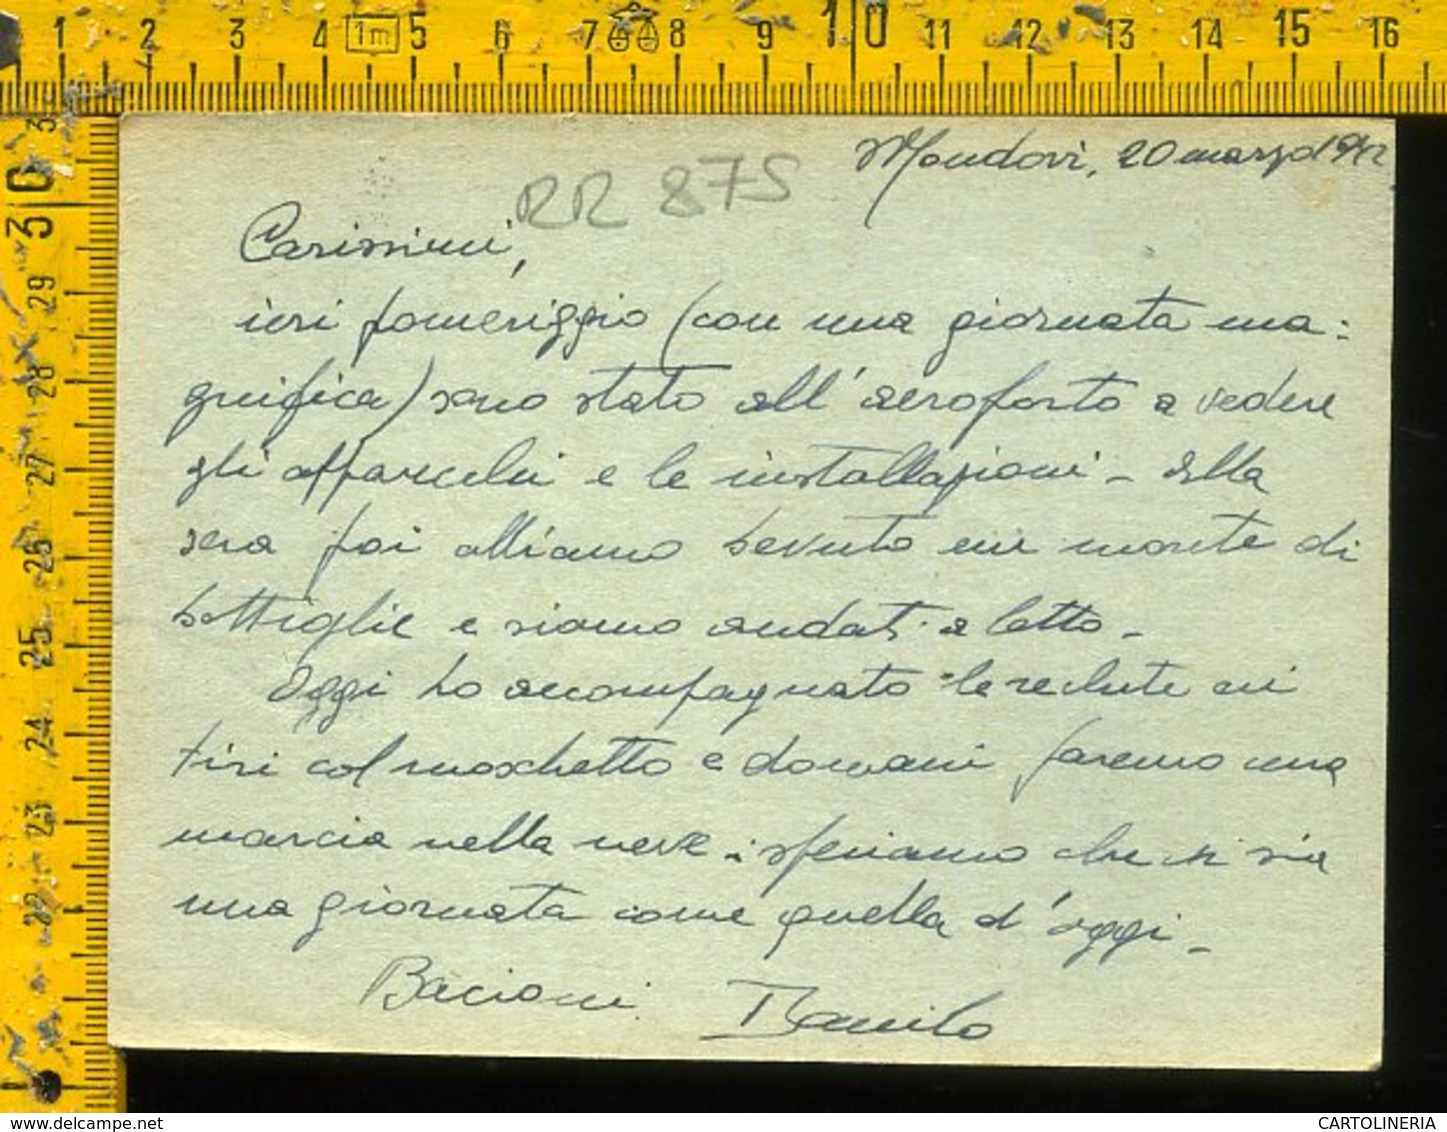 1 2 3 4 1m 5 6 7 8 9 10 11 12 13 14 15 16
3 30 29 28 27 26 25 24 23 22
Mondovì, 20 marzo 1942
RR 875
Carissimi,
ieri pomeriggio (con una giornata ma=
gnifica) sono stato all'aeroporto a vedere
gli apparecchi e le installazioni - alla
sera poi abbiamo bevuto un monte di
bottiglie e siamo andati a letto -
Oggi ho accompagnato le reclute ai
tiri col moschetto e domani faremo una
marcia nella neve. speriamo che ci sia
una giornata come quella d'oggi -
Bacioni Danilo
www.delcampe.net
CARTOLINERIA